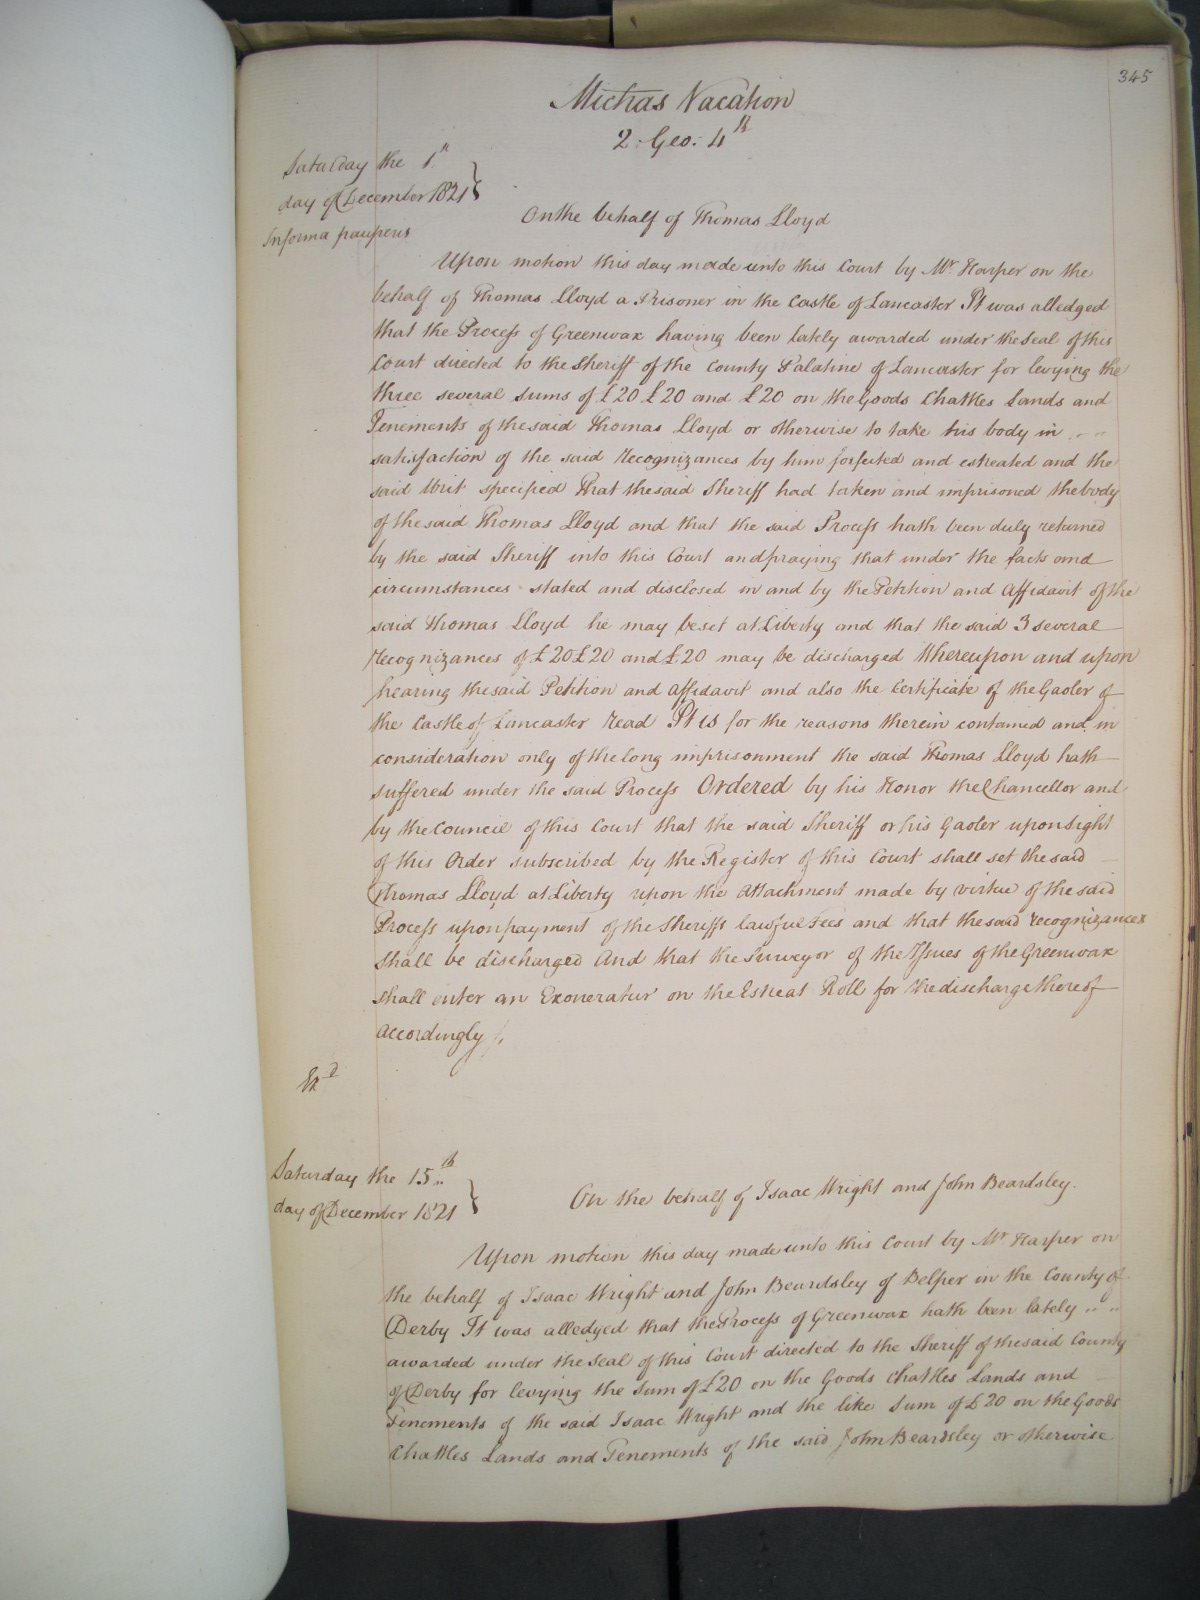 345
Michas Vacation
2 Geo: 4th
Saturday the 1st
day of December 1821
In forma pauperis
On the behalf of Thomas Lloyd
Upon motion this day made unto this Court by Mr Harper on the
behalf of Thomas Lloyd a Prisoner in the Castle of Lancaster It was alledged
that the Process of Greenwax having been lately awarded under the Seal of this
Court directed to the Sheriff of the County Palatine of Lancaster for levying the
three several Sums of £20 £20 and £20 on the Goods Chattles Lands and
Tenements of the said Thomas Lloyd or otherwise to take his body in
satisfaction of the said Recognizances by him forfeited and estreated and the
said Writ specified That the said Sheriff had taken and imprisoned the body
of the said Thomas Lloyd and that the said Process hath been duly returned
by the said Sheriff into this Court and praying that under the facts and
circumstances stated and disclosed in and by the Petition and Affidavit of the
said Thomas Lloyd he may be set at Liberty and that the said 3 several
Recognizances of £20 £20 and £20 may be discharged Whereupon and upon
hearing the said Petition and Affidavit and also the Certificate of the Gaoler of
the Castle of Lancaster read It is for the reasons therein contained and in
consideration only of the long imprisonment the said Thomas Lloyd hath
suffered under the said Process Ordered by his Honor the Chancellor and
by the Council of this Court that the said Sheriff or his Gaoler upon Sight
of this Order subscribed by the Register of this Court shall set the said
Thomas Lloyd at Liberty upon the Attachment made by virtue of the said
Process upon payment of the Sheriffs lawful Fees and that the said recognizances
shall be discharged And that the Surveyor of the Issues of the Greenwax
shall enter an Exoneratur on the Estreat Roll for the discharge thereof
accordingly
Exd
Saturday the 15th
day of December 1821
On the behalf of Isaac Wright and John Beardsley.
Upon motion this day made unto this Court by Mr Harper on
the behalf of Isaac Wright and John Beardsley of Belper in the County of
Derby It was alledged that the Process of Greenwax hath been lately
awarded under the Seal of this Court directed to the Sheriff of the said County
of Derby for levying the Sum of £20 on the Goods Chattles Lands and
Tenements of the said Isaac Wright and the like Sum of £20 on the Goods
Chattles Lands and Tenements of the said John Beardsley or otherwise